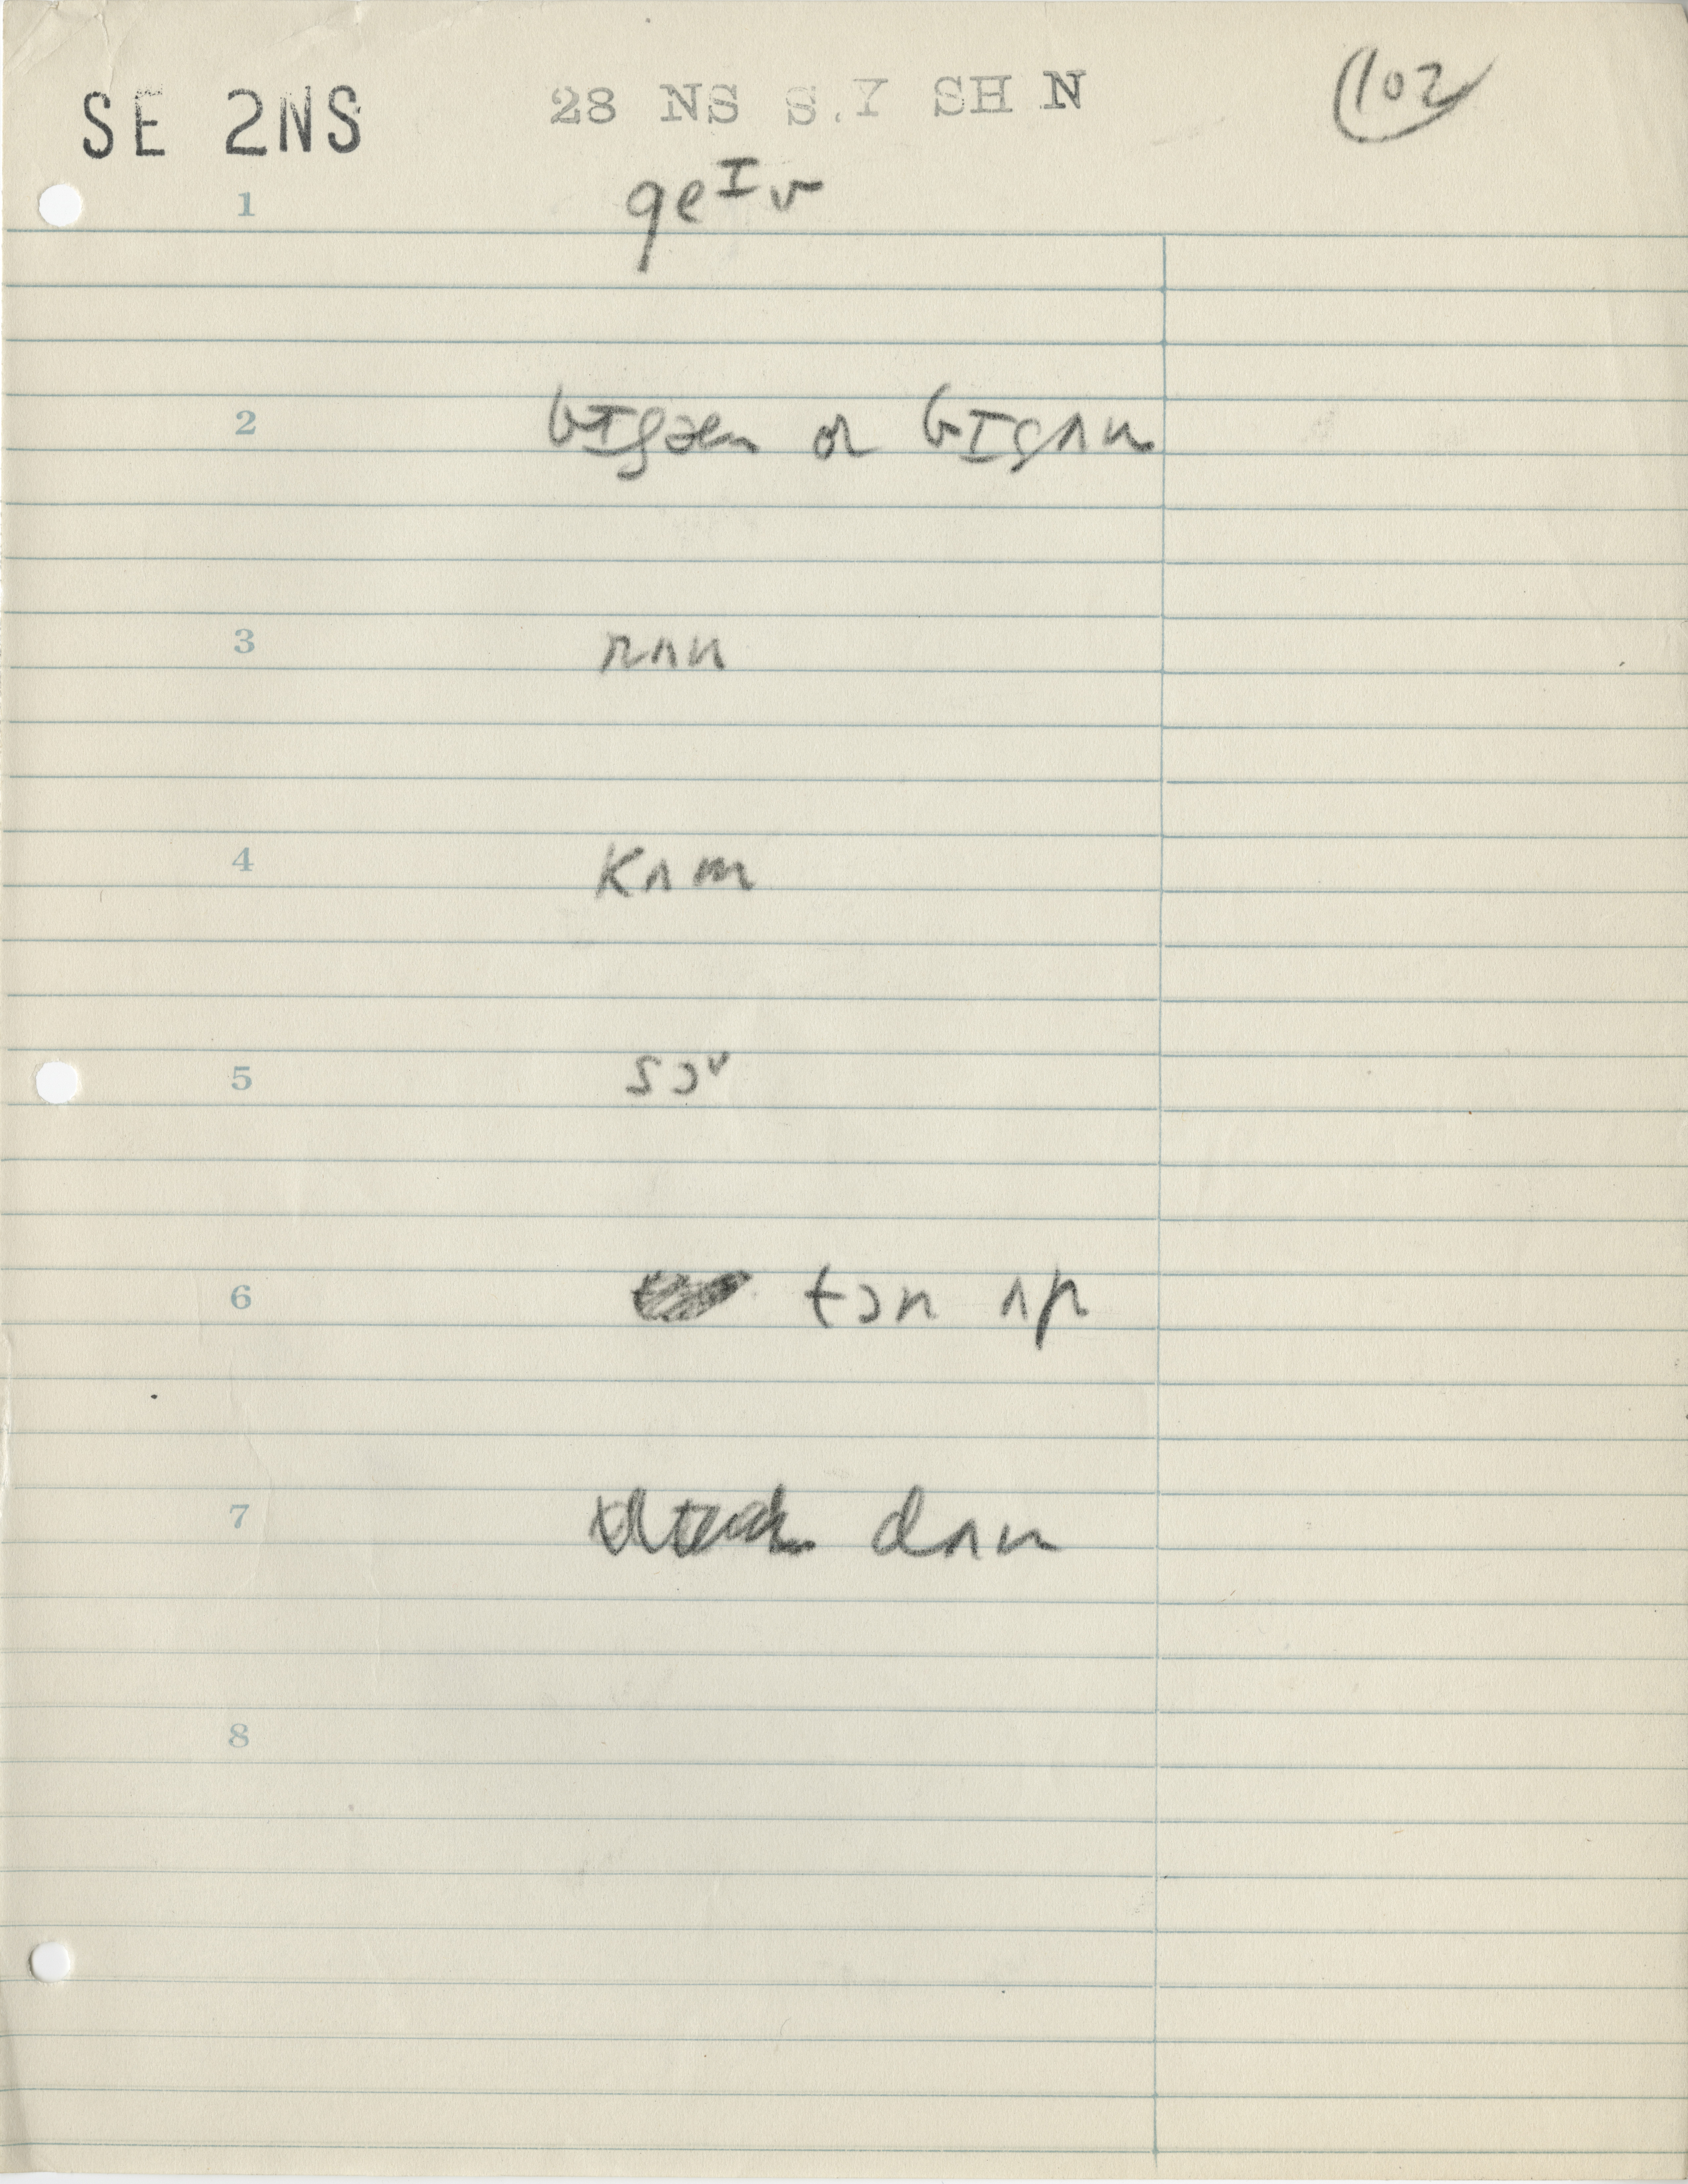 SE 2NS 28 NS S.Y SH N 102
1 geᴵv
2 bɪgæn or bɪgʌn
3 rʌn
4 kʌm
5 sɔᵛ
6 tɔn ʌp
7 dʌn
8